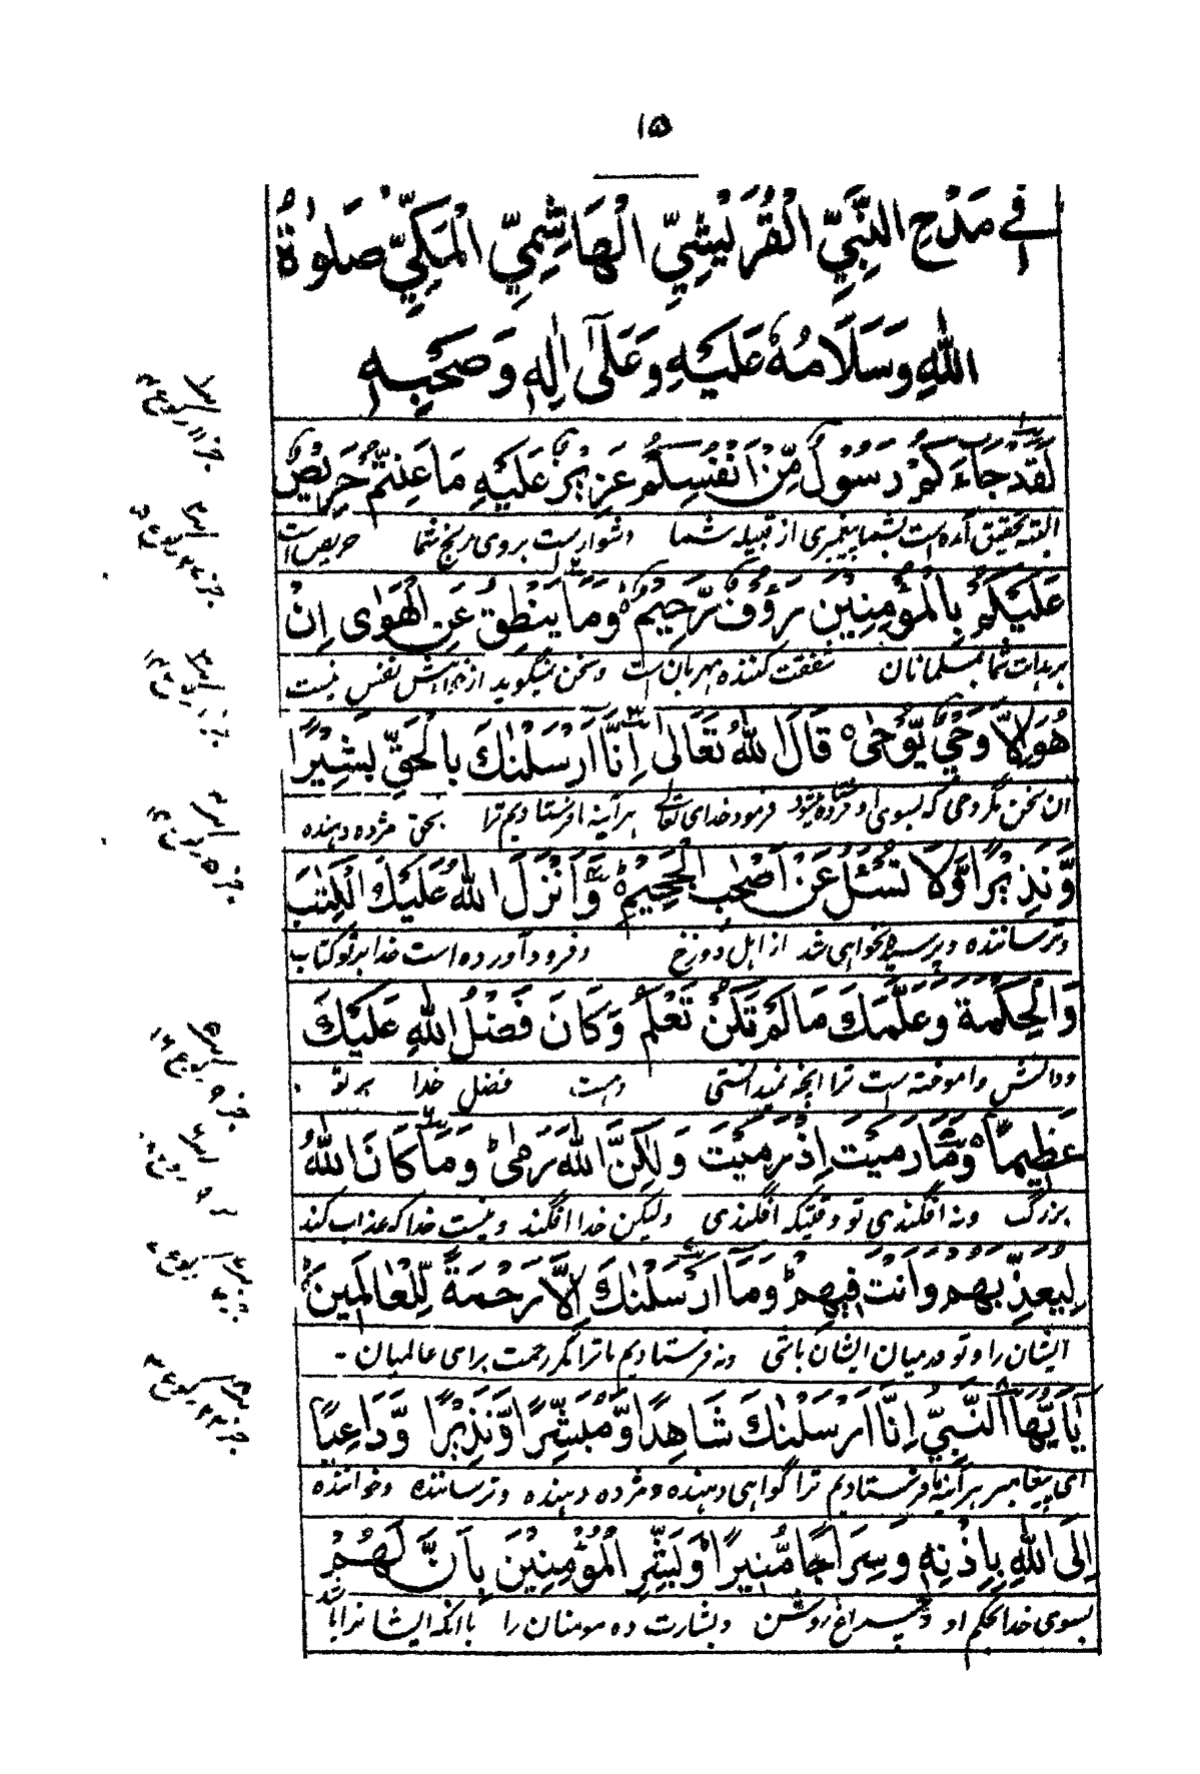 ۱۵
فِي مَدْحِ النَّبِيِّ الْقُرَيْشِيِّ الْهَاشِمِيِّ الْمَكِّيِّ صَلٰوةُ
اللهِ وَسَلَامُهٗ عَلَيْهِ وَعَلٰٓى اٰلِهٖ وَصَحْبِهٖ
لَقَدْ جَآءَكُمْ رَسُوْلٌ مِّنْ اَنْفُسِكُمْ عَزِيْزٌ عَلَيْهِ مَا عَنِتُّمْ حَرِيْصٌ
البته تحقیق آمده است بشما پیغمبری از قبیله شما دشوارست بروی رنج شما حریص است
عَلَيْكُمْ بِالْمُؤْمِنِيْنَ رَءُوْفٌ رَّحِيْمٌ وَمَا يَنْطِقُ عَنِ الْهَوٰى اِنْ
بر هدایت شما بمسلمانان شفقت کننده مهربان ست و سخن نمیگوید از خواهش نفس نیست
هُوَ اِلَّا وَحْيٌ يُّوْحٰى قَالَ اللهُ تَعَالٰى اِنَّا اَرْسَلْنٰكَ بِالْحَقِّ بَشِيْرًا
ان سخن مگر وحی که بسوی او فرستاده میشود فرمود خدای تعالی هرآینه ما فرستادیم ترا بحق مژده دهنده
وَّنَذِيْرًا وَّلَا تُسْئَلُ عَنْ اَصْحٰبِ الْجَحِيْمِ وَاَنْزَلَ اللهُ عَلَيْكَ الْكِتٰبَ
و ترساننده و پرسیده نخواهی شد از اهل دوزخ و فرود آورده است خدا بر تو کتاب
وَالْحِكْمَةَ وَعَلَّمَكَ مَا لَمْ تَكُنْ تَعْلَمُ وَكَانَ فَضْلُ اللهِ عَلَيْكَ
و دانش و آموخته ست ترا انچه نمیدانستی و هست فضل خدا بر تو
عَظِيْمًا وَمَا رَمَيْتَ اِذْ رَمَيْتَ وَلٰكِنَّ اللهَ رَمٰى وَمَا كَانَ اللهُ
بزرگ و نه افگندی تو وقتیکه افگندی ولیکن خدا افگند و نیست خدا که عذاب کند
لِيُعَذِّبَهُمْ وَاَنْتَ فِيْهِمْ وَمَآ اَرْسَلْنٰكَ اِلَّا رَحْمَةً لِّلْعٰالَمِيْنَ
ایشان را و تو درمیان ایشان باشی و نه فرستادیم ما ترا مگر رحمت برای عالمیان -
يَا اَيُّهَا النَّبِيُّ اِنَّا اَرْسَلْنٰكَ شَاهِدًا وَّمُبَشِّرًا وَّنَذِيْرًا وَّدَاعِيًا
ای پیغامبر هرآینه ما فرستادیم ترا گواهی دهنده و مژده دهنده و ترساننده و خواننده
اِلَى اللهِ بِاِذْنِهٖ وَسِرَاجًا مُّنِيْرًا وَبَشِّرِ الْمُؤْمِنِيْنَ بِاَنَّ لَهُمْ
بسوی خدا بحکم او و چراغ روشن و بشارت ده مومنان را باانکه ایشانرا باشد